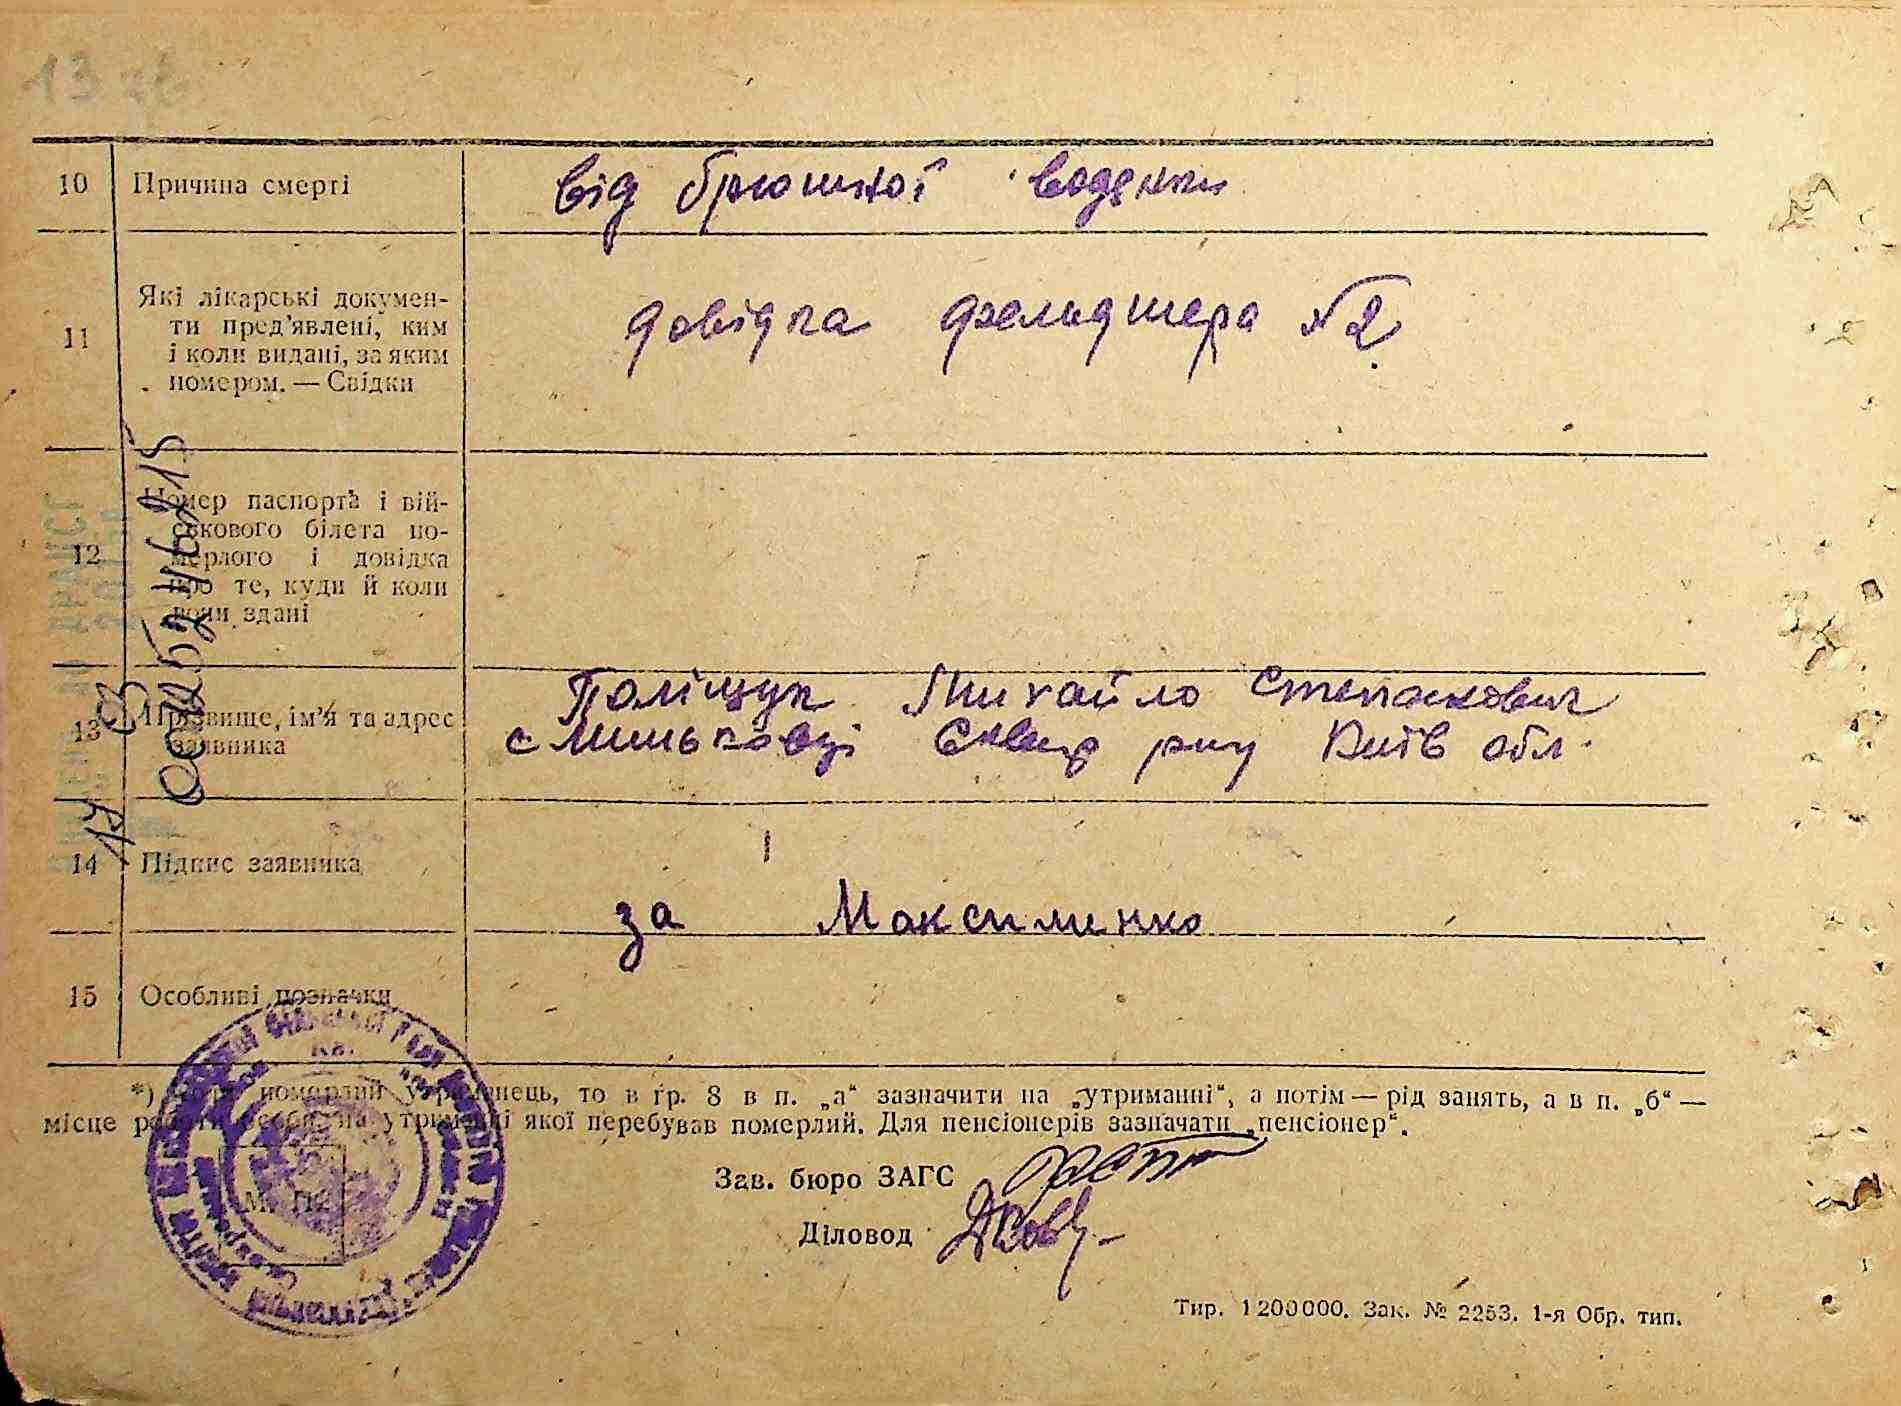 10 Причина смерті від брюшної водянки
11 Які лікарські докумен-
ти пред'явлені, ким
і коли видані, за яким
номером. — Свідки
довідка фельдшера №2
12 Номер паспорта і вій-
ськового білета по-
мерлого і довідка
про те, куди й коли
вони здані
13 Прізвище, ім'я та адрес
заявника
Поліщук Михайло Степанович
с Миньковці Сквир р-ну Київ обл.
14 Підпис заявника
за Максименко
15 Особливі позначки
*) Якщо померлий утриманець, то в гр. 8 в п. „а“ зазначити на „утриманні“, а потім — рід занять, а в п. „б“ —
місце роботи особи, на утриманні якої перебував померлий. Для пенсіонерів зазначати „пенсіонер“.
М. П.
Зав. бюро ЗАГС
Діловод
Тир. 1200000. Зак. № 2253. 1-я Обр. тип.